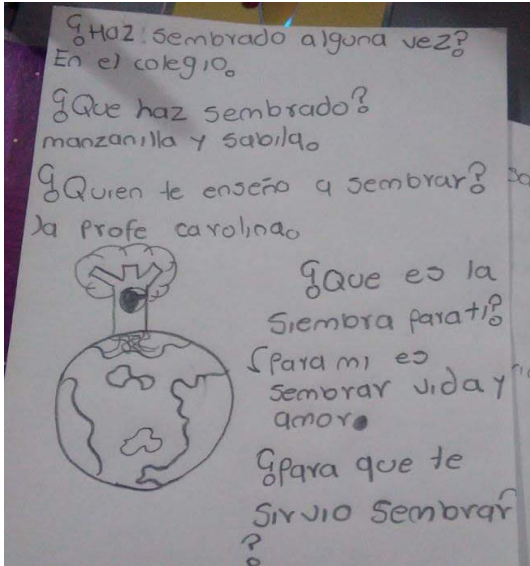 ¿Haz sembrado alguna vez?
En el colegio.
¿Que haz sembrado?
manzanilla y sabila.
¿Quien te enseño a sembrar?
la profe carolina.
¿Que es la
siembra para ti?
para mi es
sembrar vida y
amor.
¿para que te
sirvio sembrar
?